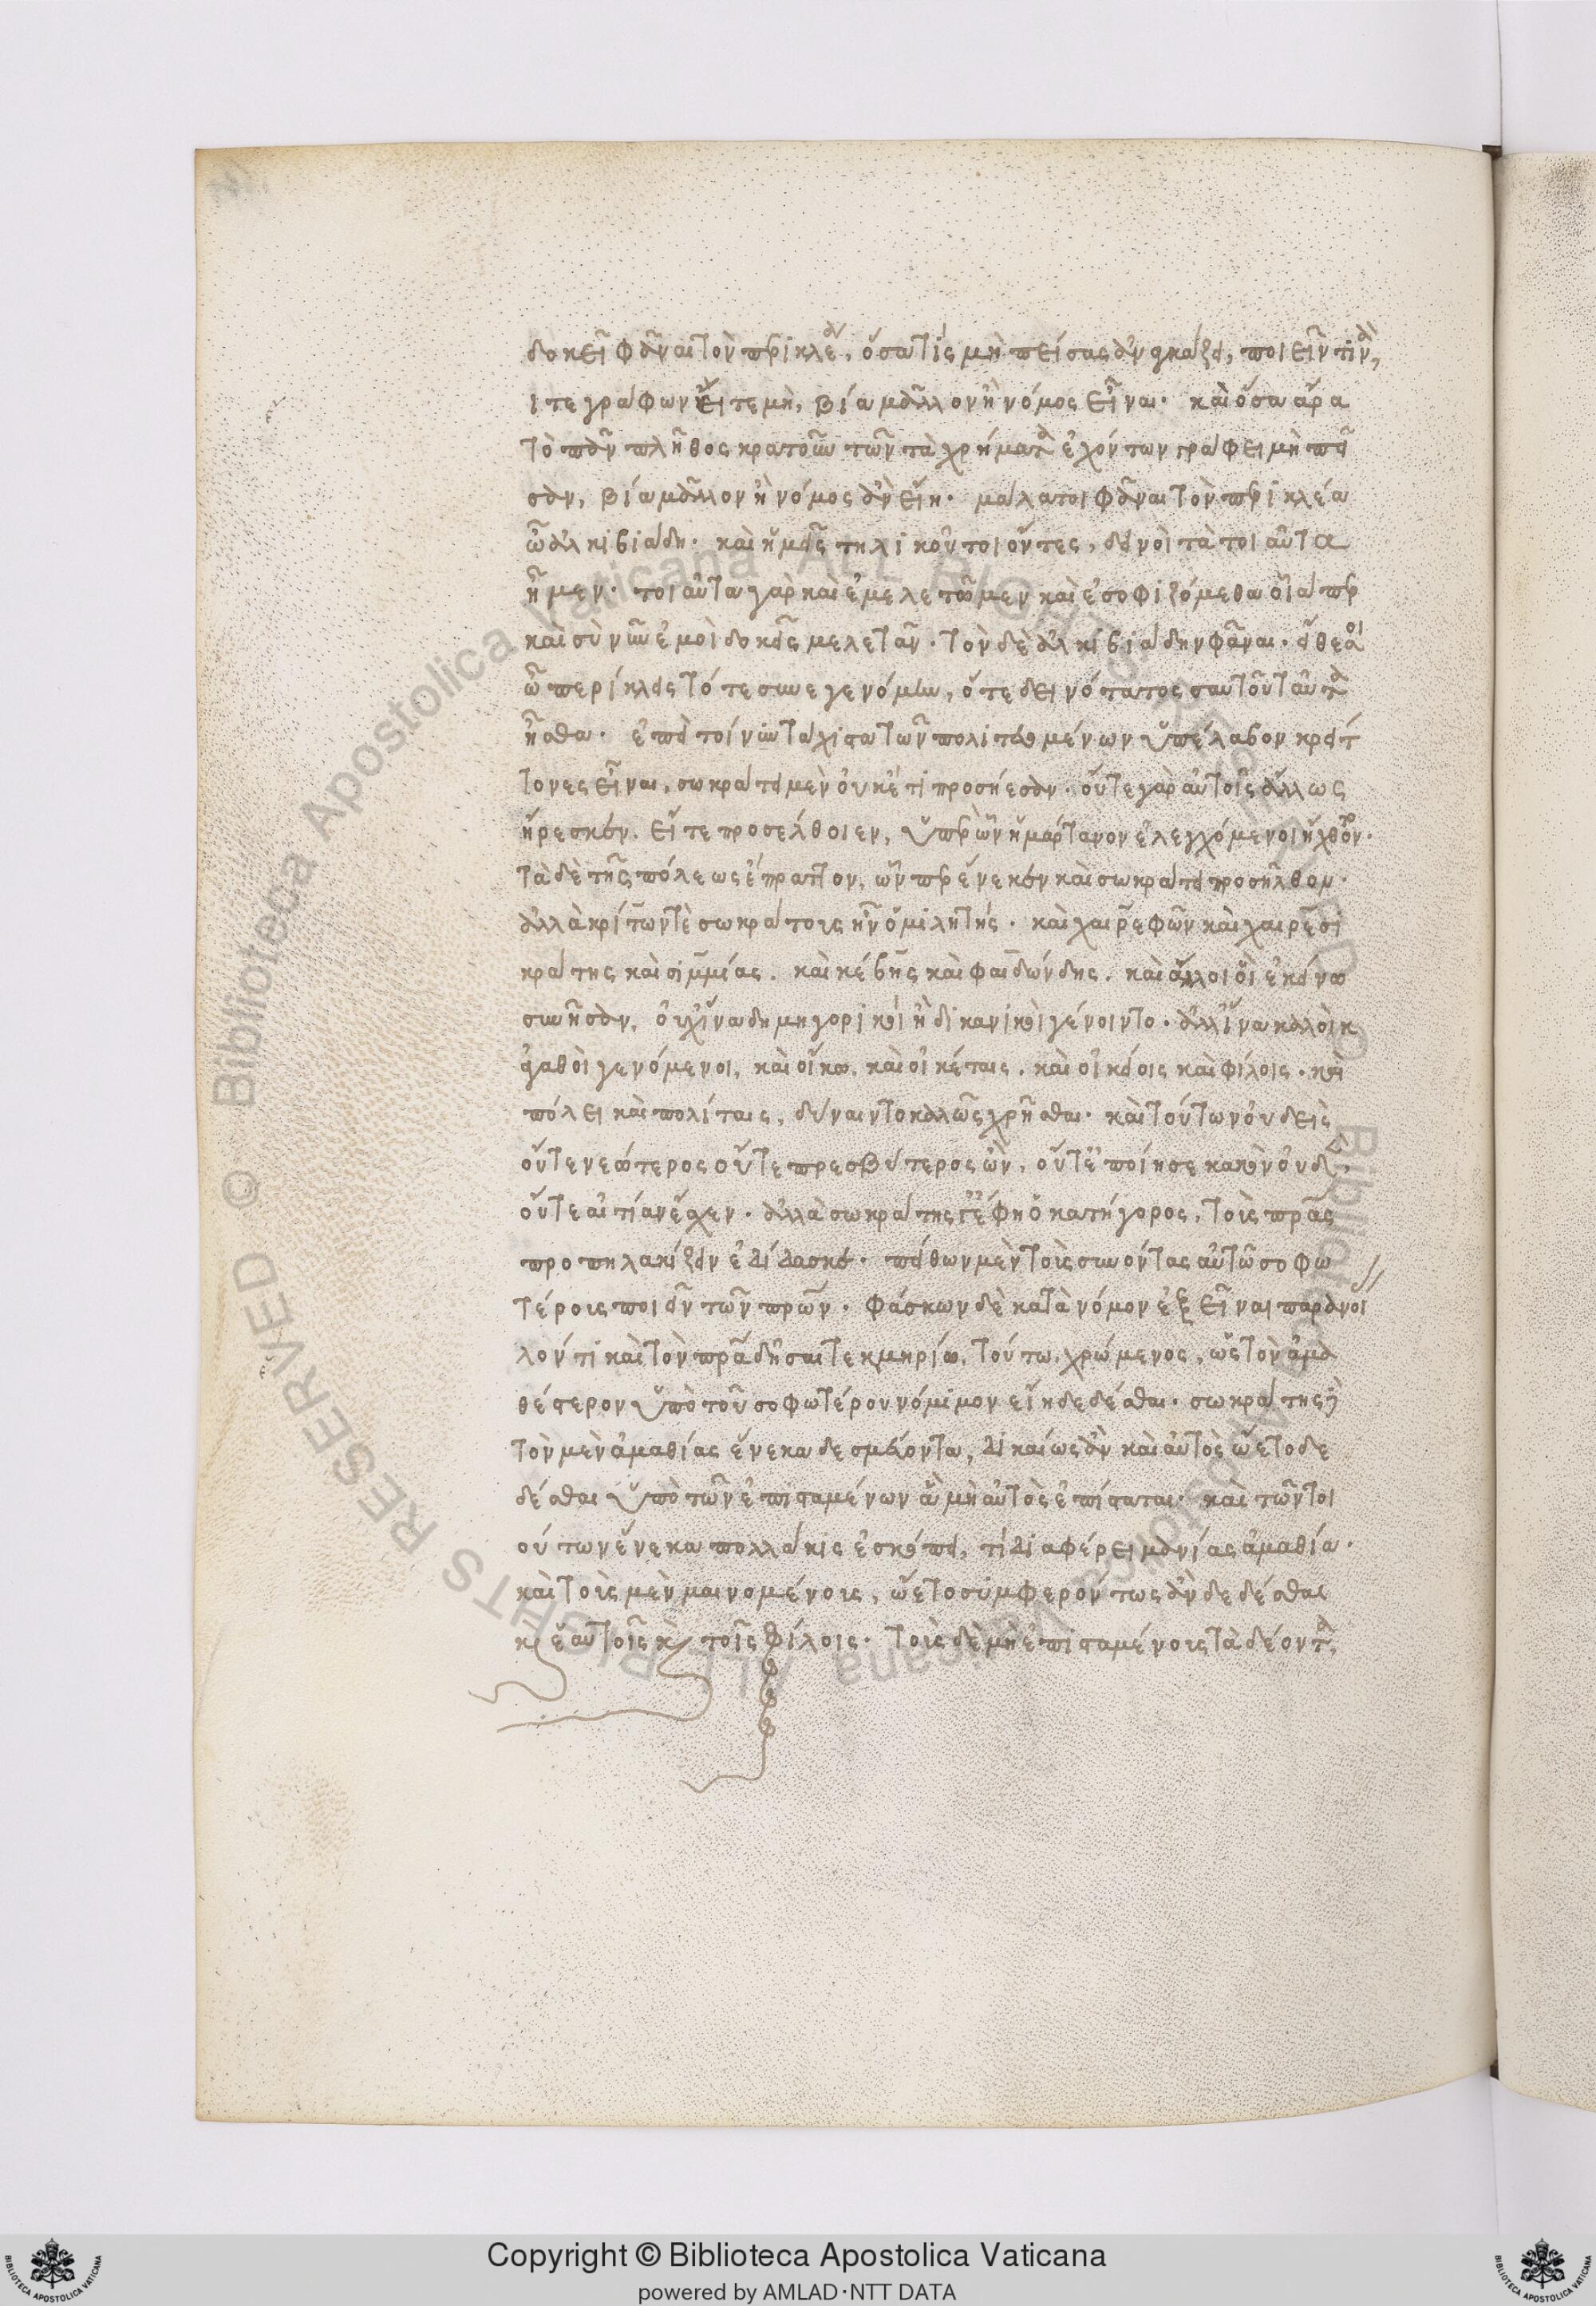 δοκεῖ φάναι τὸν περικλέα, ὅσα τίς μὴ πείσας ἀναγκάζει, ποιεῖν τινὰ,
ιτε γράφων εἴτε μὴ, βία μᾶλλον ἢ νόμος εἶναι. καὶ ὅσα ἄρα
τὸ πᾶν πλῆθος κρατοῦν τῶν τὰ χρήματα ἐχόντων γράφει μὴ πεῖ
σαν, βία μᾶλλον ἢ νόμος ἂν εἴη. μάλα τοι φάναι τὸν περικλέα
ὦ ἀλκιβιάδη. καὶ ἡμεῖς τηλικοῦτοι ὄντες, δεινοὶ τὰ τοιαῦτα
ἦμεν. τοιαῦτα γὰρ καὶ ἐμελετῶμεν καὶ ἐσοφιζόμεθα οἷα περ
καὶ σὺ νῦν ἐμοὶ δοκεῖς μελετᾶν. τὸν δὲ ἀλκιβιάδην φάναι. εἴθε σοι
ὦ περίκλεις τότε συνεγενόμην, ὅτε δεινότατος σαυτοῦ ταῦτα
ἦσθα. ἐπεὶ τοίνυν τάχιστα τῶν πολιτευομένων ὑπέλαβον κρείτ
τονες εἶναι, σωκράτει μὲν οὐκέτι προσήεσαν. οὔτε γὰρ αὐτοῖς ἄλλως
ἤρεσκεν. εἴτε προσέλθοιεν, ὑπὲρ ὧν ἡμάρτανον ἐλεγχόμενοι ἤχθοντο.
τὰ δὲ τῆς πόλεως ἔπραττον, ὧν περ ἕνεκεν καὶ σωκράτει προσῆλθον.
ἀλλὰ κρίτων τὲ σωκράτους ἦν ὁμιλητής. καὶ χαιρεφῶν καὶ χαιρεσι
κράτης καὶ σιμμίας. καὶ κέβης καὶ φαιδώνδης. καὶ ἄλλοι οἳ ἐκείνω
συνῆσαν, οὐχ ἵνα δημηγορικοὶ ἢ δικανικοὶ γένοιντο. ἀλλ' ἵνα καλοὶ κ
ἀγαθοὶ γενόμενοι, καὶ οἴκω, καὶ οἰκέταις, καὶ οἰκείοις καὶ φίλοις. καὶ
πόλει καὶ πολίταις, δύναιντο καλῶς χρῆσθαι. καὶ τούτων οὐδεὶς
οὔτε νεώτερος οὔτε πρεσβύτερος ὢν, οὔτ' ἐποίησε κακὸν οὐδὲν,
οὔτε αἰτίαν ἔσχεν. ἀλλὰ σωκράτης γ' ἔφη ὁ κατήγορος, τοὺς πρας
προπηλακίζειν ἐδίδασκε. πείθων μὲν τοὺς συνόντας αὐτῶ σοφω
τέρους ποιεῖν τῶν πρων. φάσκων δὲ κατὰ νόμον ἐξεῖναι παρανοί
λόντι καὶ τὸν πρα δῆσαι τεκμηρίω, τούτω χρώμενος, ὡς τὸν ἀμα
θέστερον ὑπὸ τοῦ σοφωτέρου νόμιμον εἴη δεδέσθαι. σωκράτης δὲ
τὸν μὲν ἀμαθίας ἕνεκα δεσμεύοντα, δικαίως ἂν καὶ αὐτὸς ὤετο δε
δέσθαι ὑπὸ τῶν ἐπισταμένων ἃ μὴ αὐτὸς ἐπίσταται. καὶ τῶν τοι
ούτων ἕνεκα πολλάκις ἐσκόπει, τί διαφέρει μανίας ἀμαθία.
καὶ τοὺς μὲν μαινομένους, ὤετο συμφερόντως ἂν δεδέσθαι
κ ἑαυτοῖς κ τοῖς φίλοις. τοὺς δὲ μὴ ἐπισταμένους τὰ δέοντα,
Copyright © Biblioteca Apostolica Vaticana
powered by AMLAD·NTT DATA